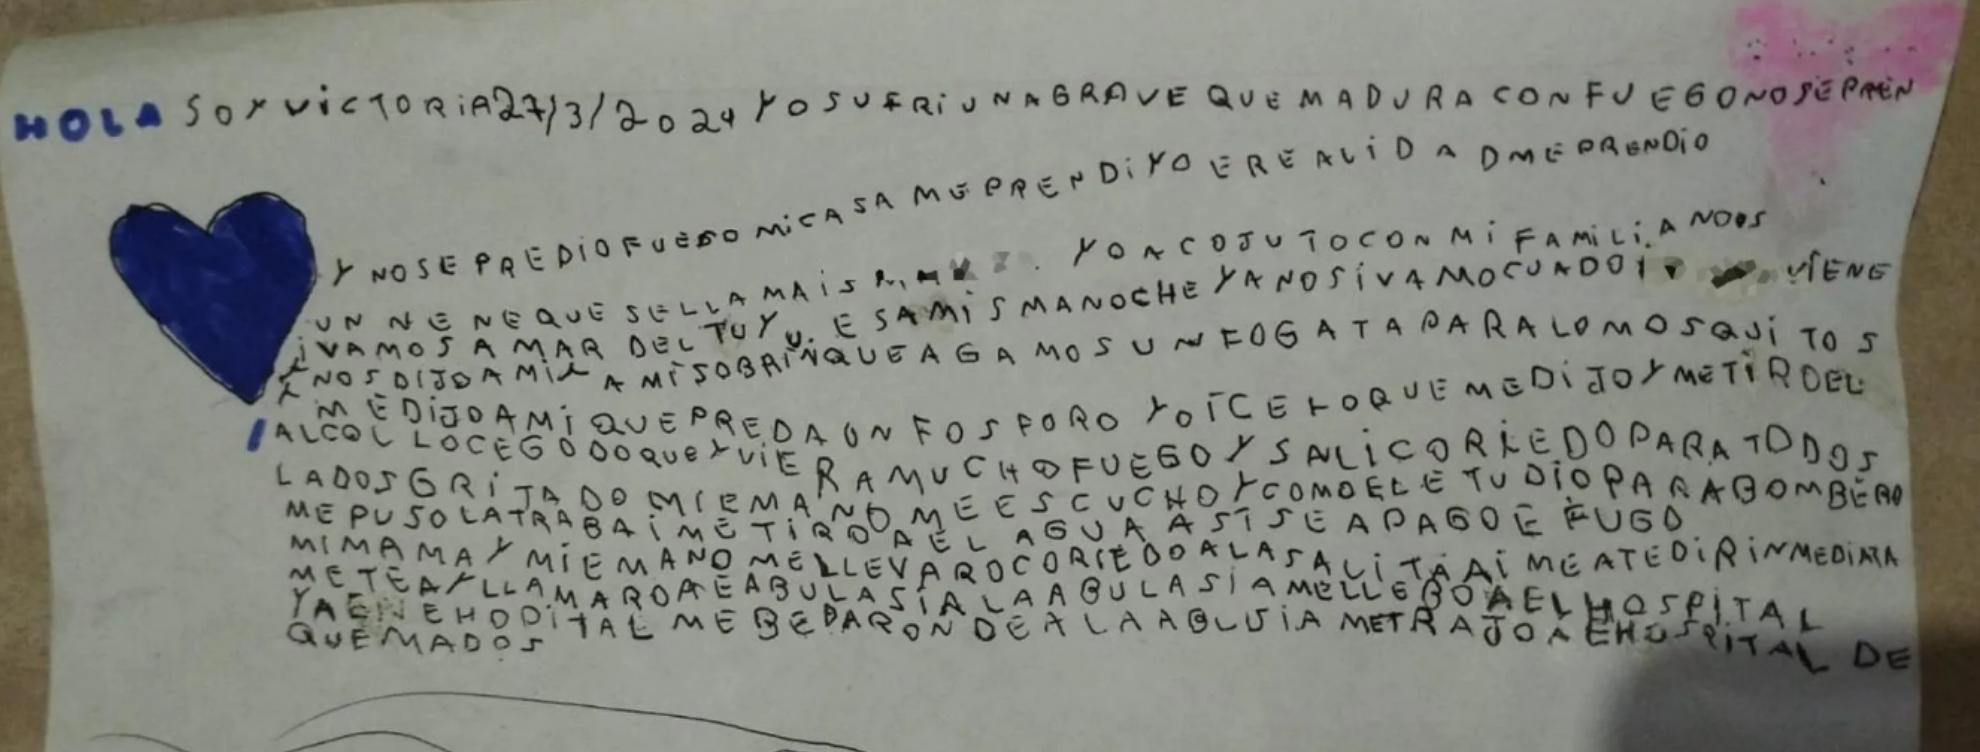 HOLA SOY VICTORIA 27/3/2024 YO SUFRI UNA GRAVE QUEMADURA CON FUEGO NO SE PREN
Y NO SE PREDIO FUEGO MI CASA ME PRENDI YO E REALIDAD ME PRENDIO
UN NENE QUE SE LLAMA YO ACOJUTO CON MI FAMILIA NOOS
IVAMOS A MAR DEL TUYU. ESA MISMA NOCHE YA NOS IVAMO CUADO VIENE
Y NOS DIJO A MI Y A MI SOBRIN QUE AGAMOS UN FOGATA PARA LO MOSQUITOS
Y ME DIJO A MI QUE PREDA UN FOSFORO YO ICE LO QUE ME DIJO Y ME TIRO EL
ALCOL LO CEGO DO QUE Y VIERA MUCHO FUEGO Y SALI CORIEDO PARA TODOS
LADOS GRITADO MI EMANO ME ESCUCHO Y COMO EL ETUDIO PARA BOMBERO
ME PUSO LA TRABA I ME TIRO A EL AGUA ASI SE APAGO E FUGO
MI MAMA Y MI EMANO ME LLEVARO CORIEDO A LA SALITA AI ME ATEDIR INMEDIATA
METE A Y LLAMARO A E ABULASIA LA ABULASIA ME LLEBO A EL HOSPITAL
YA EN E HOPITAL ME BEPARON DE A LA ABLUSIA ME TRAJO A EHOSPITAL DE
QUEMADOS